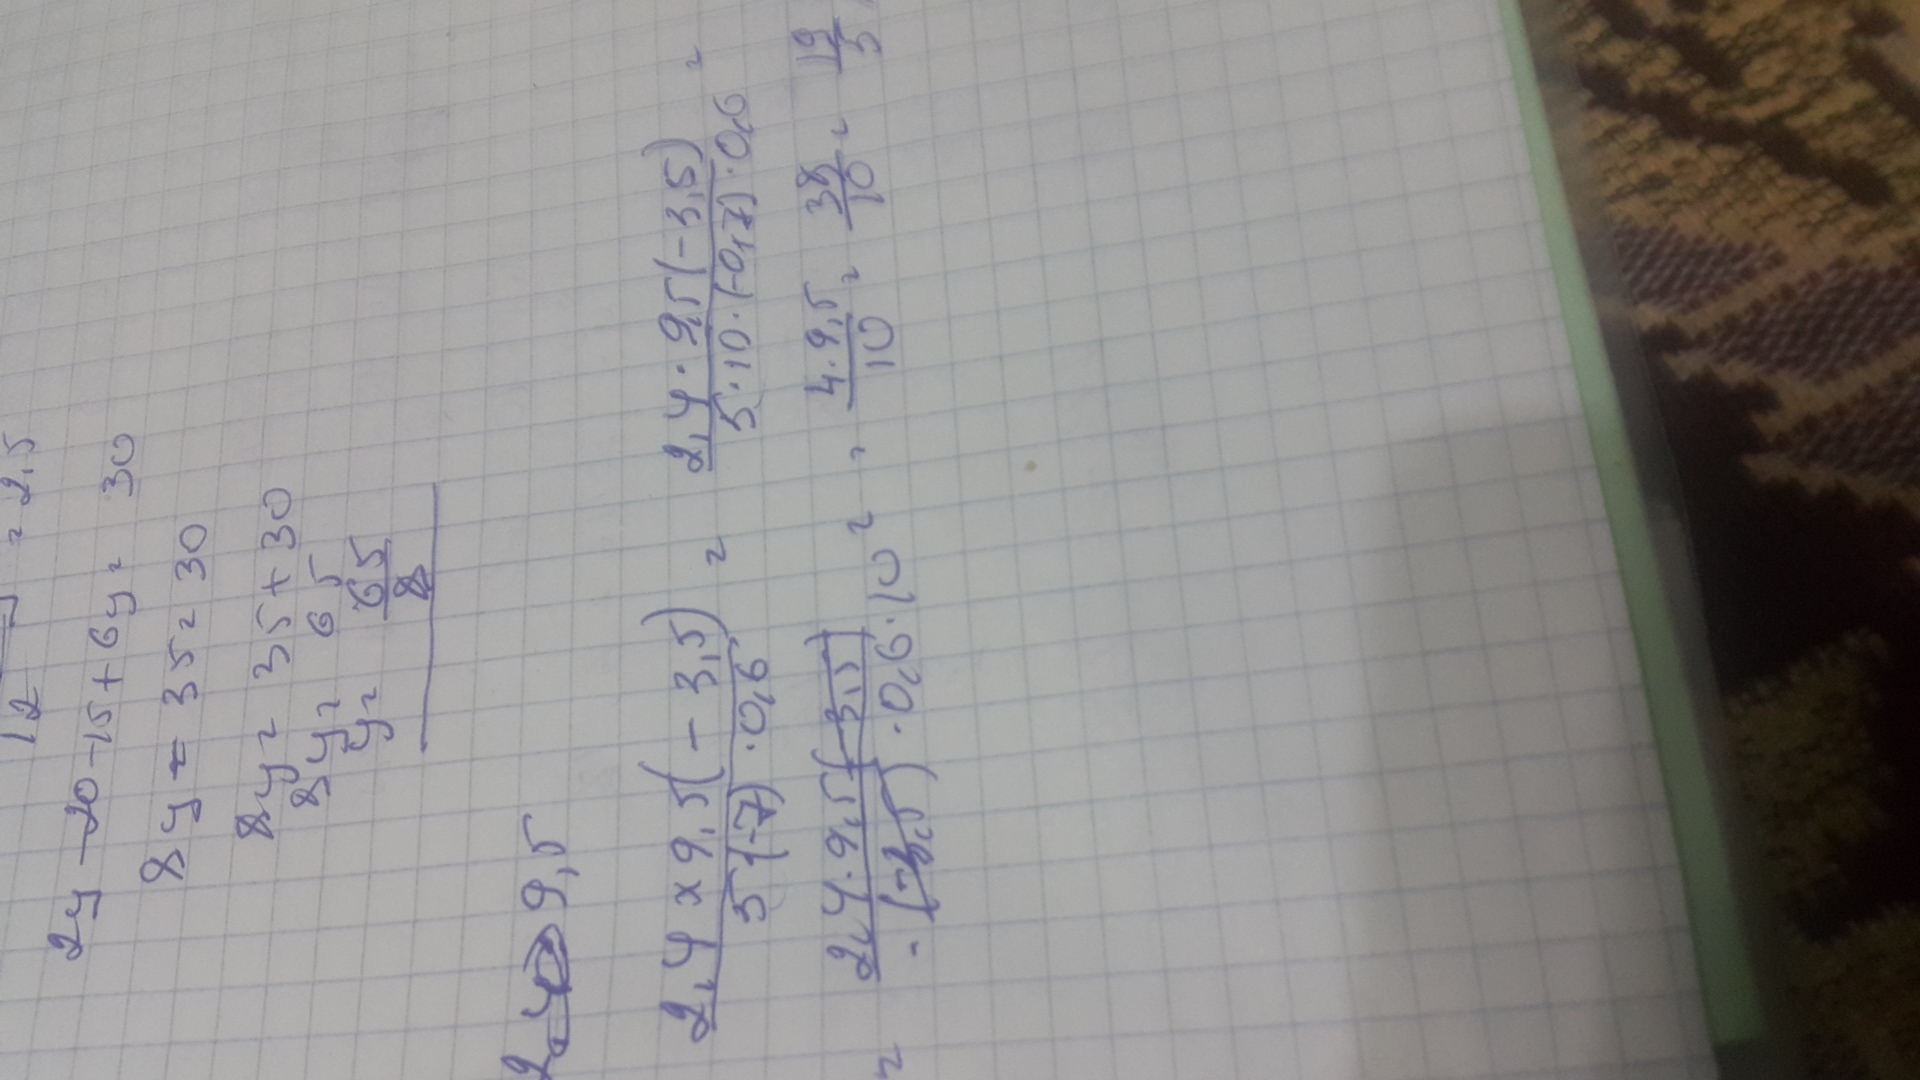 12 = 2,5
2y - 20 - 15 + 6y = 30
8y - 35 = 30
8y = 35 + 30
8y = 65
y = 65/8
9,5
2,4 x 9,5(-3,5) / 5·(-7)·0,6 = 2,4·9,5(-3,5) / 5·10·(-0,7)·0,6 =
= 2,4·9,5(-3,5) / (-3,5)·0,6·10 = = 4·9,5 / 10 = 38/10 = 19/5